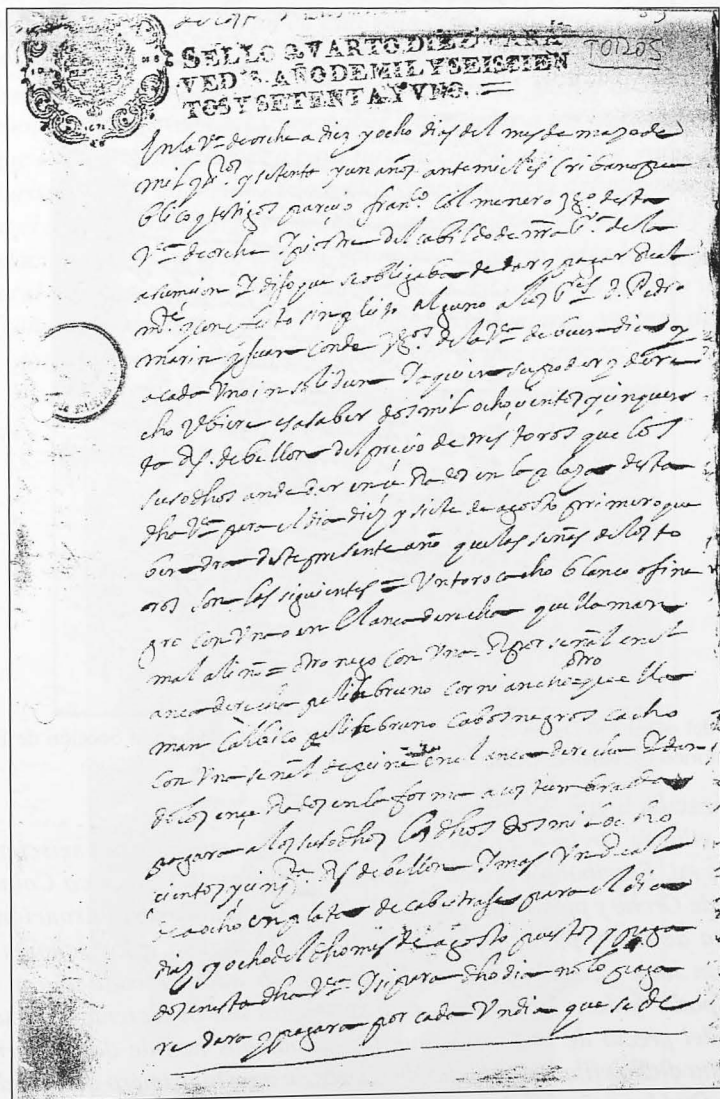 SELLO QVARTO, DIEZ MARA
VEDIS, AÑO DE MIL Y SEISCIEN
TOS Y SETENTA Y VNO.
TOROS
1671
En la Vª de orche a diez y ocho dias del mes de mayo de
mil y setenta y un años ante mi el escribano pu
blico y testigos parecio franco Colmenero desta
Vª de orche del cabildo de nra de la
asumcion y dijo que se obligaba de dar y pagar
sin pleito alguno a Pedro
marin y Juan Conde de la Vª de buendia y
a cada Uno in solidun y a quien su poder y dere
cho Vbiere es a saber dos mil ochocientos y cinquen
ta Rs. de bellon del precio de tres toros que los
susodhos an de dar en la plaza desta
dha Vª para el dia diez y siete de agosto primero que
bendra deste presente año que las señas de los to
ros son las siguientes = Un toro cacho blanco
gro con Un en el anca derecha que llaman
= otro negro con Una por señal en el
anca derecha brueno corniancho otro que lla
man brueno Cabos negros cacho
con Una señal de en el anca derecha y dan
dolos en la forma acostumbrada
pagara a los susodhos los dhos dos mil ocho
cientos y cinqta Rs de bellon y mas Un Real
de a ocho en plata de cabestraje para el dia
diez y ocho del dho mes de agosto puestos y paga
dos en esta dha Vª y si para dho dia no lo paga
re dara y pagara por cada Un dia que se de